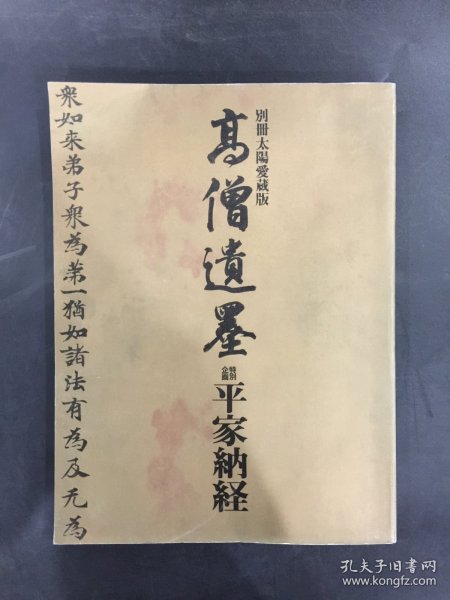 別冊太陽愛蔵版
高僧遺墨
特別
企画
平家納経
衆如来弟子衆為第一猶如諸法有為及无為
孔夫子旧书网
www.kongfz.com